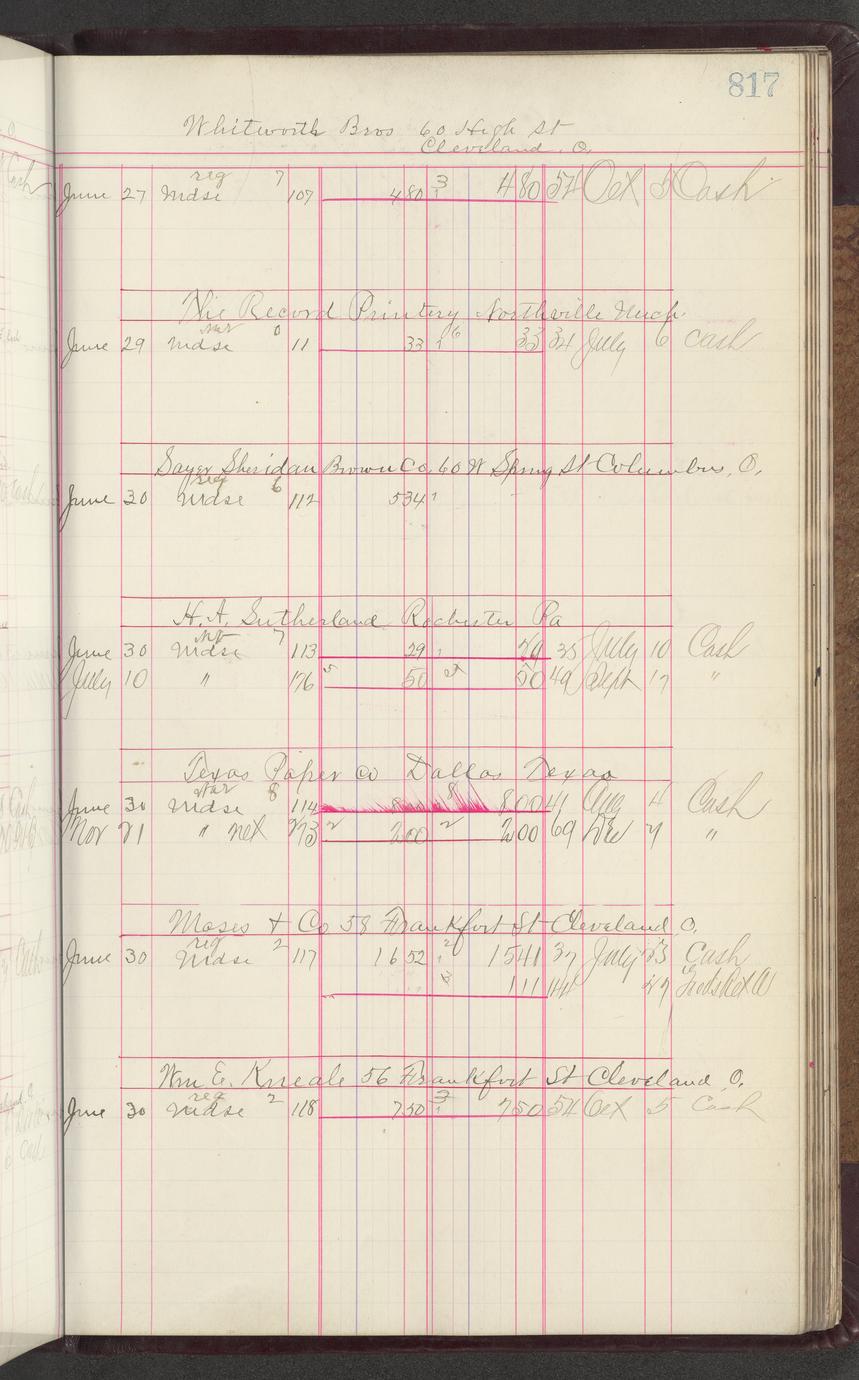 817
Whitworth Bros 60 High St
Cleveland, O.
reg 7
June 27 Mdse 107 480 3 1 480 54 Oct 5 Cash
The Record Printery Northville Mich.
0
June 29 Mdse 11 33 1 6 33 34 July 6 Cash
Sayer Sheridan Brown Co. 60 W Spring St Columbus, O.
reg 6
June 30 Mdse 112 534 1
H. A. Sutherland Rochester Pa
7
June 30 Mdse 113 29 1 29 35 July 10 Cash
July 10 " 176 5 50 50 49 Sept 17 "
Texas Paper Co Dallas Texas
8
June 30 Mdse 114 8 800 41 Aug 4 Cash
Nov 21 " net 273 2 200 2 200 69 Dec 7 "
Moses & Co 58 Frankfort St Cleveland O.
reg 2
June 30 Mdse 117 1652 1 2 1541 37 July 23 Cash
3 111 44 27
Wm E. Kneale 56 Frankfort St Cleveland, O.
reg 2
June 30 Mdse 118 750 3 1 750 54 Oct 5 Cash